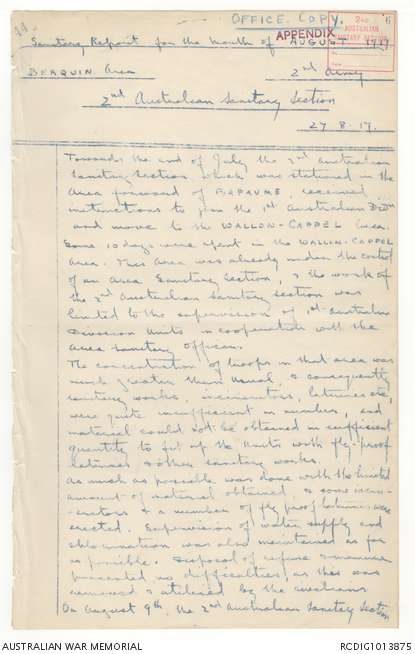 OFFICE. COPY.
APPENDIX 6
2ND
AUSTRALIAN
SANITARY SECTION
Sanitary Report for the Month of AUGUST 1917
BERQUIN Area 2nd Army
2nd Australian Sanitary Section
27-8-17.
Towards the end of July the 2nd Australian
Sanitary Section which was stationed in the
area forward of BAPAUME, received
instructions to join the 1st Australian Divn
and move to the WALLON-CAPPEL Area.
Some 10 days were spent in the WALLON-CAPPEL
Area. This Area was already under the control
of an Area Sanitary Section, & the work of
the 2nd Australian Sanitary Section was
limited to the supervision of 1st Australian
Division Units in cooperation with the
area sanitary officer.
The concentration of troops in that area was
much greater than usual, & consequently
sanitary works, incinerators, latrines etc,
were quite insufficient in numbers, and
material could not be obtained in sufficient
quantity to fit up the Units with fly-proof
latrines & other sanitary works.
As much as possible was done with the limited
amount of material obtained, & some incin-
erators & a number of fly proof latrines were
erected. Supervision of water supply and
chlorination was also maintained as far
as possible. Disposal of refuse & manure
presented no difficulties, as this was
removed & utilized by the civilians.
On August 9th, the 2nd Australian Sanitary Section
AUSTRALIAN WAR MEMORIAL
RCDIG1013875